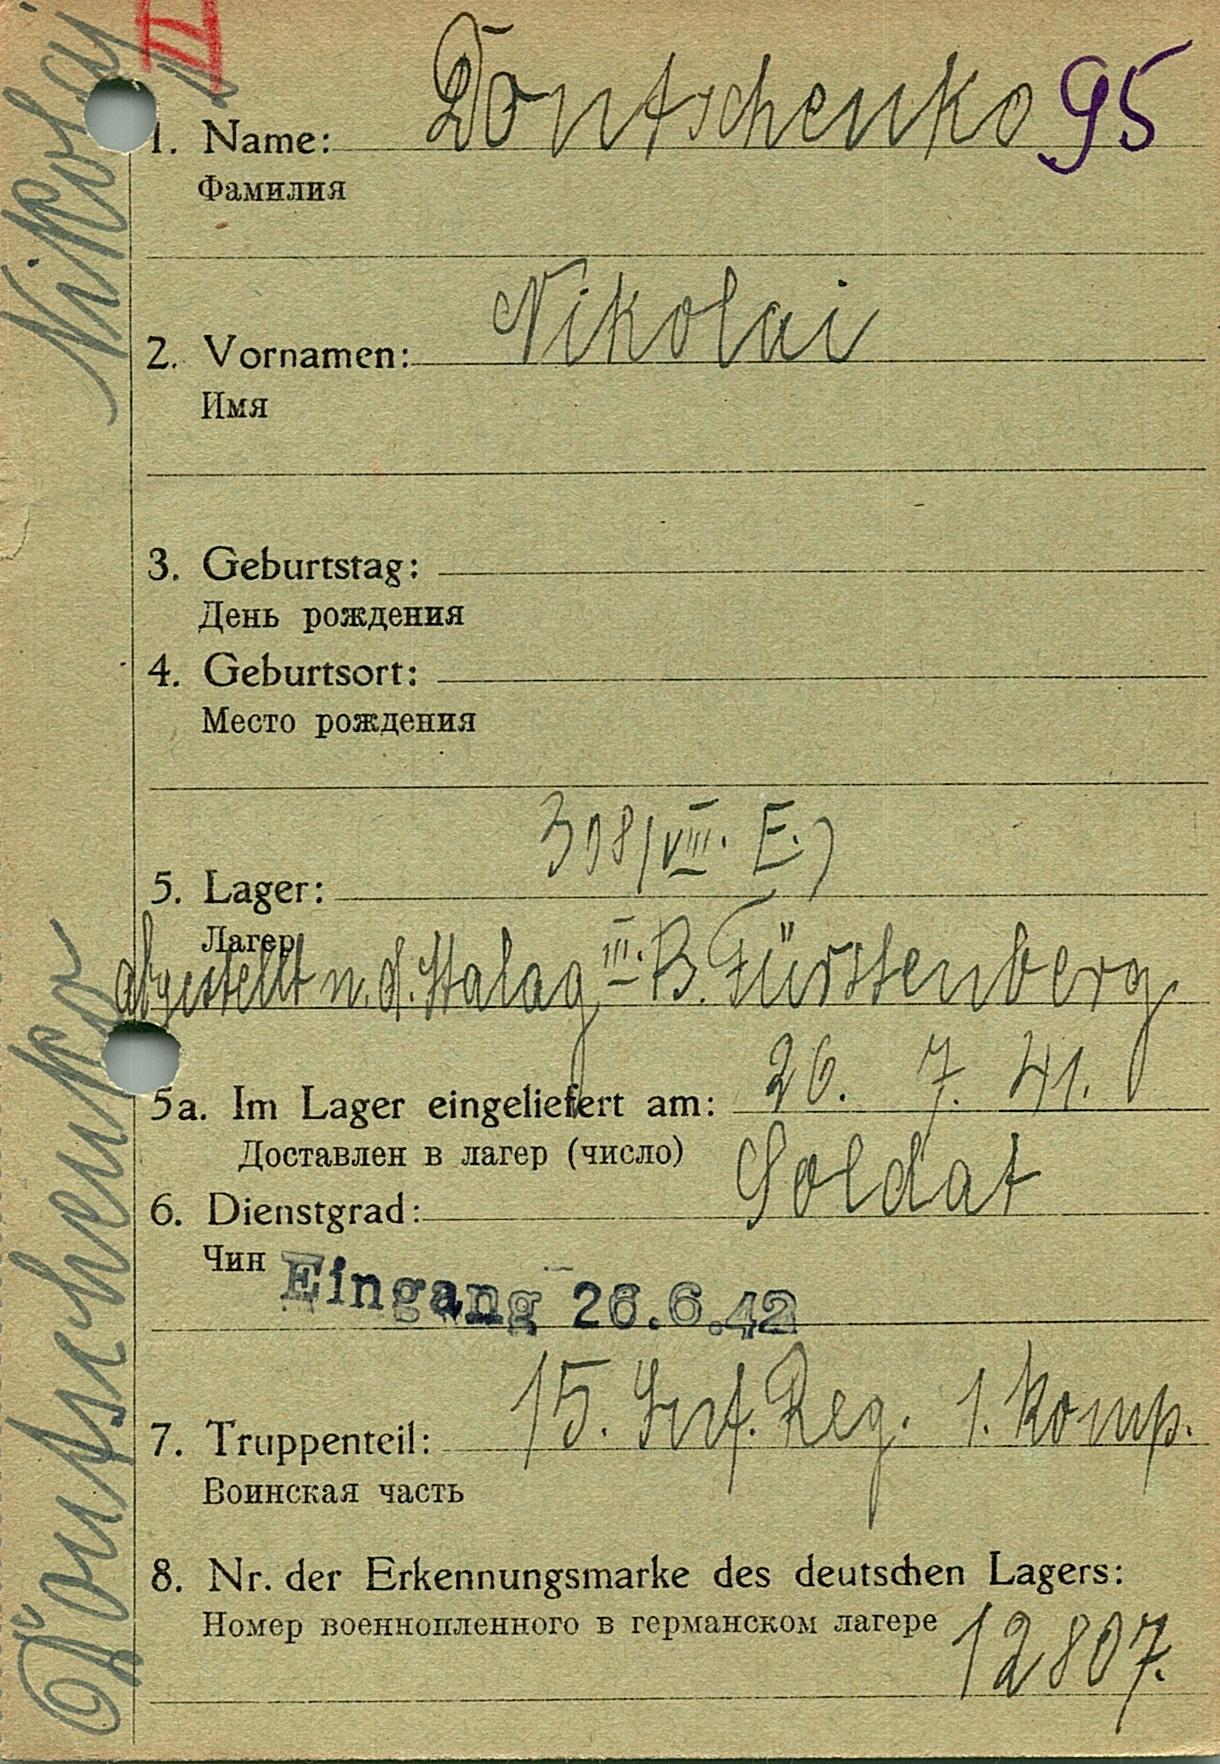 II
Dontschenko 95
1. Name:
Фамилия
Nikolai
2. Vornamen:
Имя
3. Geburtstag:
День рождения
4. Geburtsort:
Место рождения
308/VIII. E.)
5. Lager:
Лагер
abgestellt n. d. Stalag III. B. Fürstenberg
5a. Im Lager eingeliefert am: 26. 7. 41.
Доставлен в лагер (число)
6. Dienstgrad: Soldat
Чин
Eingang 26.6.42
7. Truppenteil: 15. Inf. Reg. 1. Komp.
Воинская часть
8. Nr. der Erkennungsmarke des deutschen Lagers:
Номер военнопленного в германском лагере 12807.
Dontschenko Nikolaj